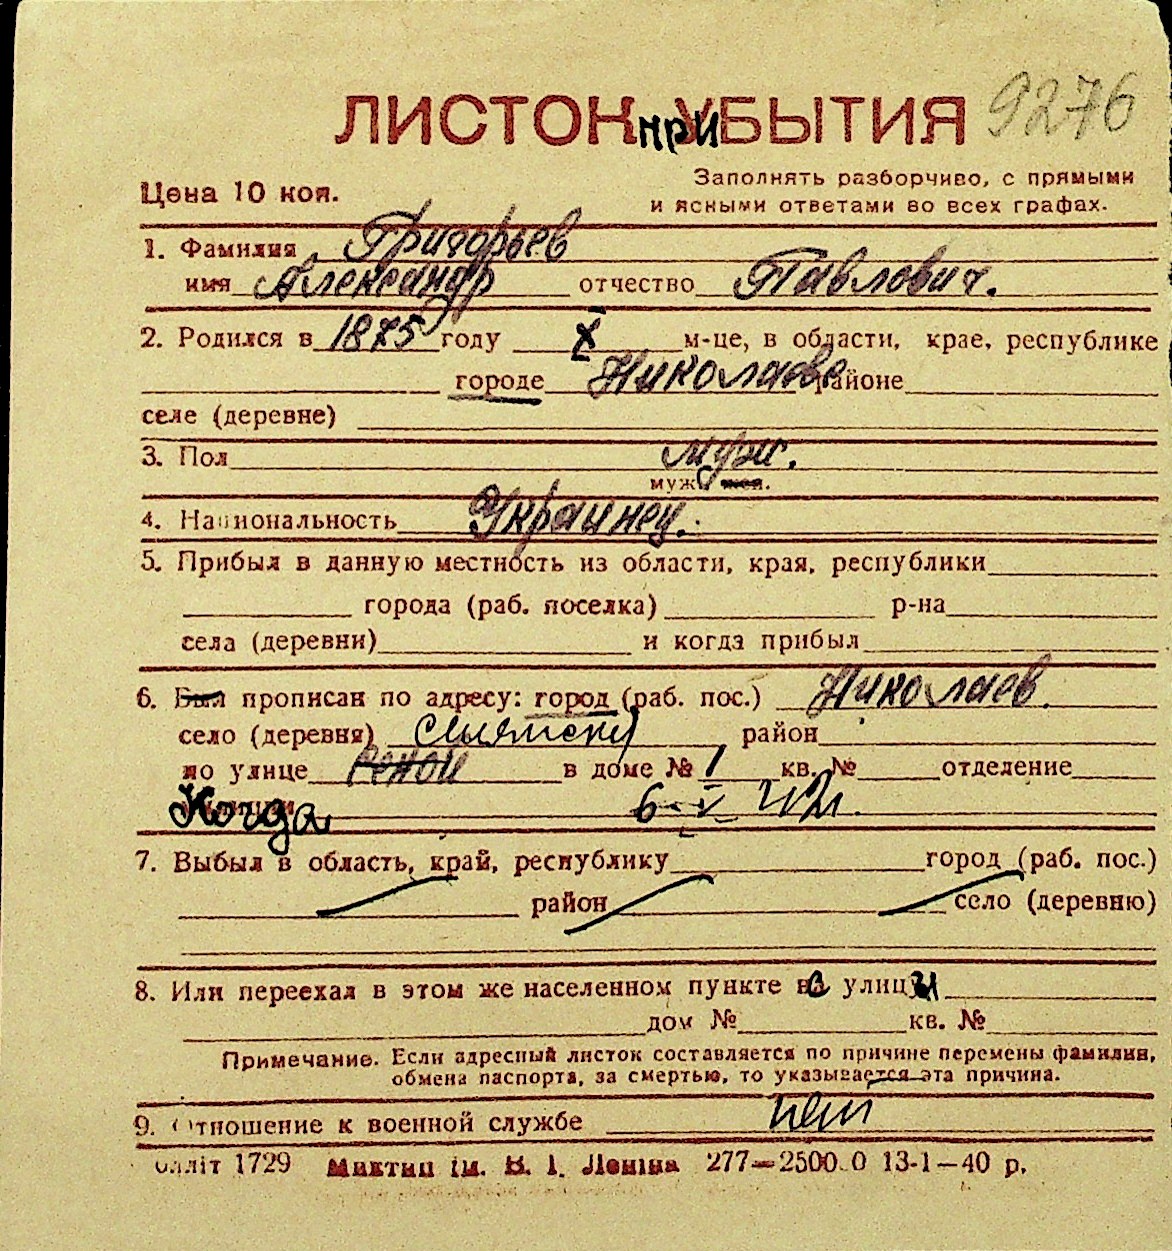 ЛИСТОК приУБЫТИЯ 9276
Цена 10 коп.
Заполнять разборчиво, с прямыми
и ясными ответами во всех графах.
1. Фамилия Григорьев
имя Александр отчество Павлович.
2. Родился в 1875 году X м-це, в области, крае, республике
городе Николаеве районе
селе (деревне)
3. Пол муж.
муж. жен.
4. Национальность Украинец.
5. Прибыл в данную местность из области, края, республики
города (раб. поселка) р-на
села (деревни) и когда прибыл
6. Был прописан по адресу: город (раб. пос.) Николаев.
село (деревня) район
по улице в доме № 1 кв. № отделение
Когда 6-V 42г.
7. Выбыл в область, край, республику город (раб. пос.)
район село (деревню)
8. Или переехал в этом же населенном пункте с улицы
дом № кв. №
Примечание. Если адресный листок составляется по причине перемены фамилии,
обмена паспорта, за смертью, то указывается эта причина.
9. Отношение к военной службе нет
лліт 1729 Миктип ім. В. І. Леніна 277—2500.0 13-1—40 р.